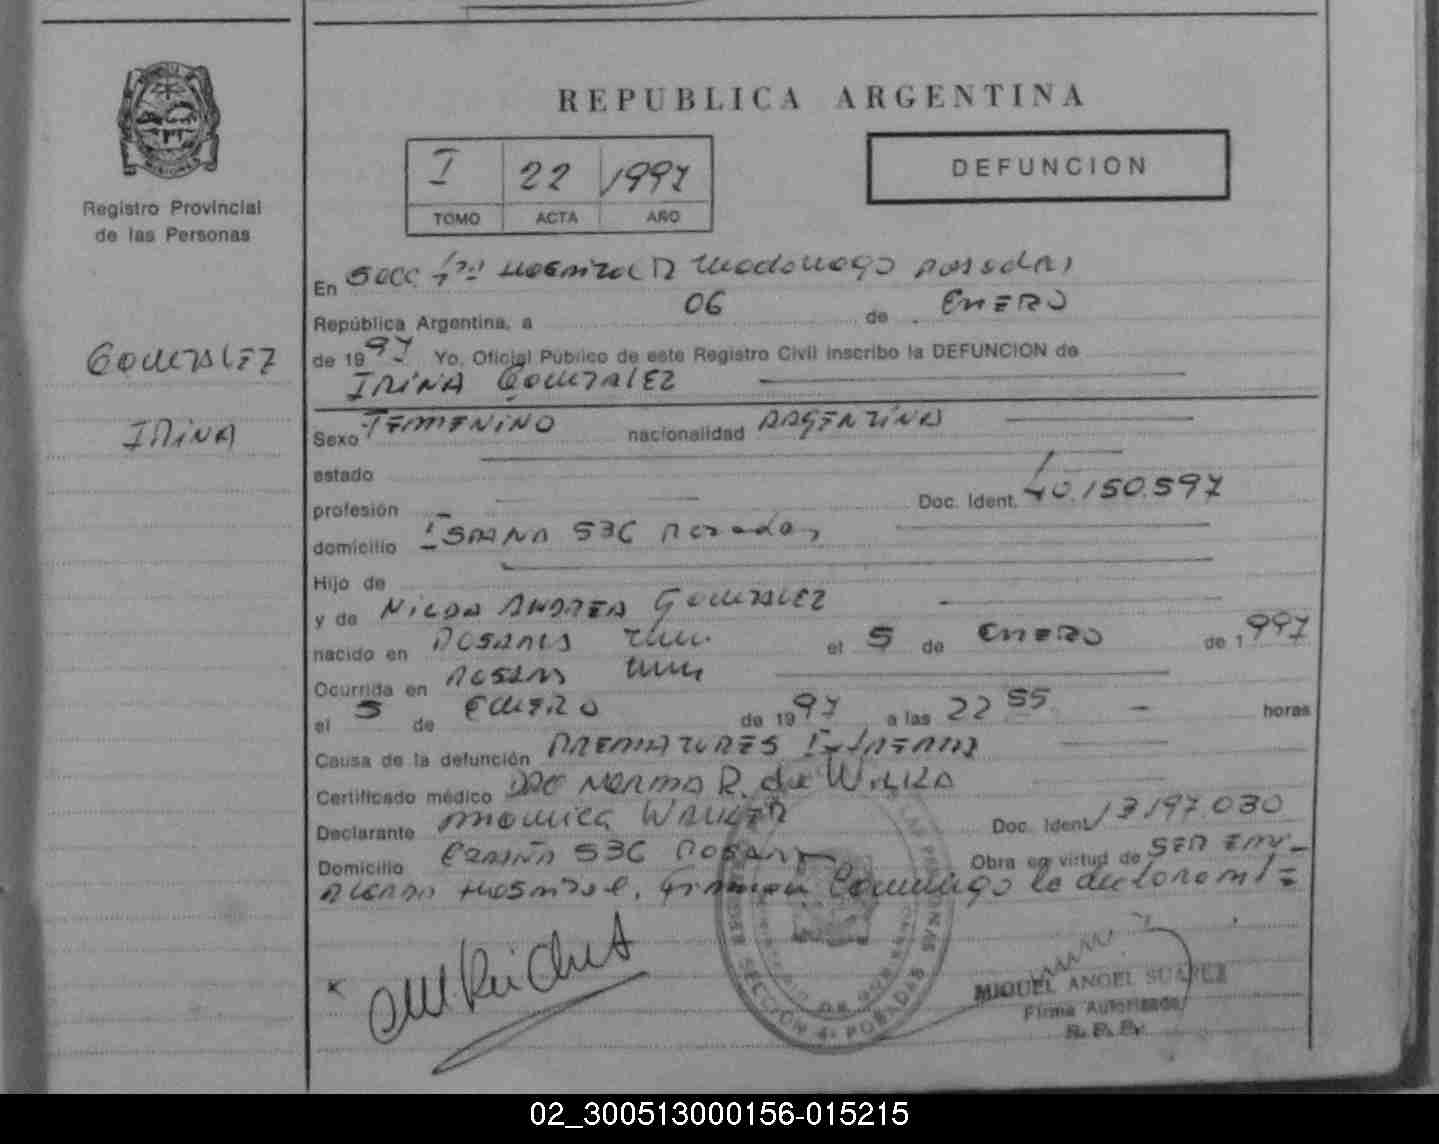 REPUBLICA ARGENTINA
I 22 1997
TOMO ACTA AÑO
DEFUNCION
MISIONES
Registro Provincial
de las Personas
GONZALEZ
IRINA
En SECC 4ta HOSPITAL R Madariaga Posadas
República Argentina, a 06 de ENERO
de 1997 Yo, Oficial Público de este Registro Civil inscribo la DEFUNCION de
IRINA GONZALEZ
Sexo FEMENINO nacionalidad ARGENTINA
estado
profesión Doc. Ident. 40.150.597
domicilio ESPAÑA 536 Posadas
Hijo de
y de NILDA ANDREA GONZALEZ
nacido en POSADAS el 5 de ENERO de 1997
Ocurrida en POSADAS
el 5 de ENERO de 1997 a las 22 55 horas
Causa de la defunción PREMATUREZ EXTREMA
Certificado médico DRA NORMA R. de
Declarante MONICA Doc. Ident. 13.197.030
Domicilio ESPAÑA 536 POSADAS Obra en virtud de SER EM-
PLEADA Hospital. Firman Conmigo la declarante
SECCION 4ª POSADAS
MIGUEL ANGEL SUAREZ
Firma Autorizada
R. P. P.
02_300513000156-015215